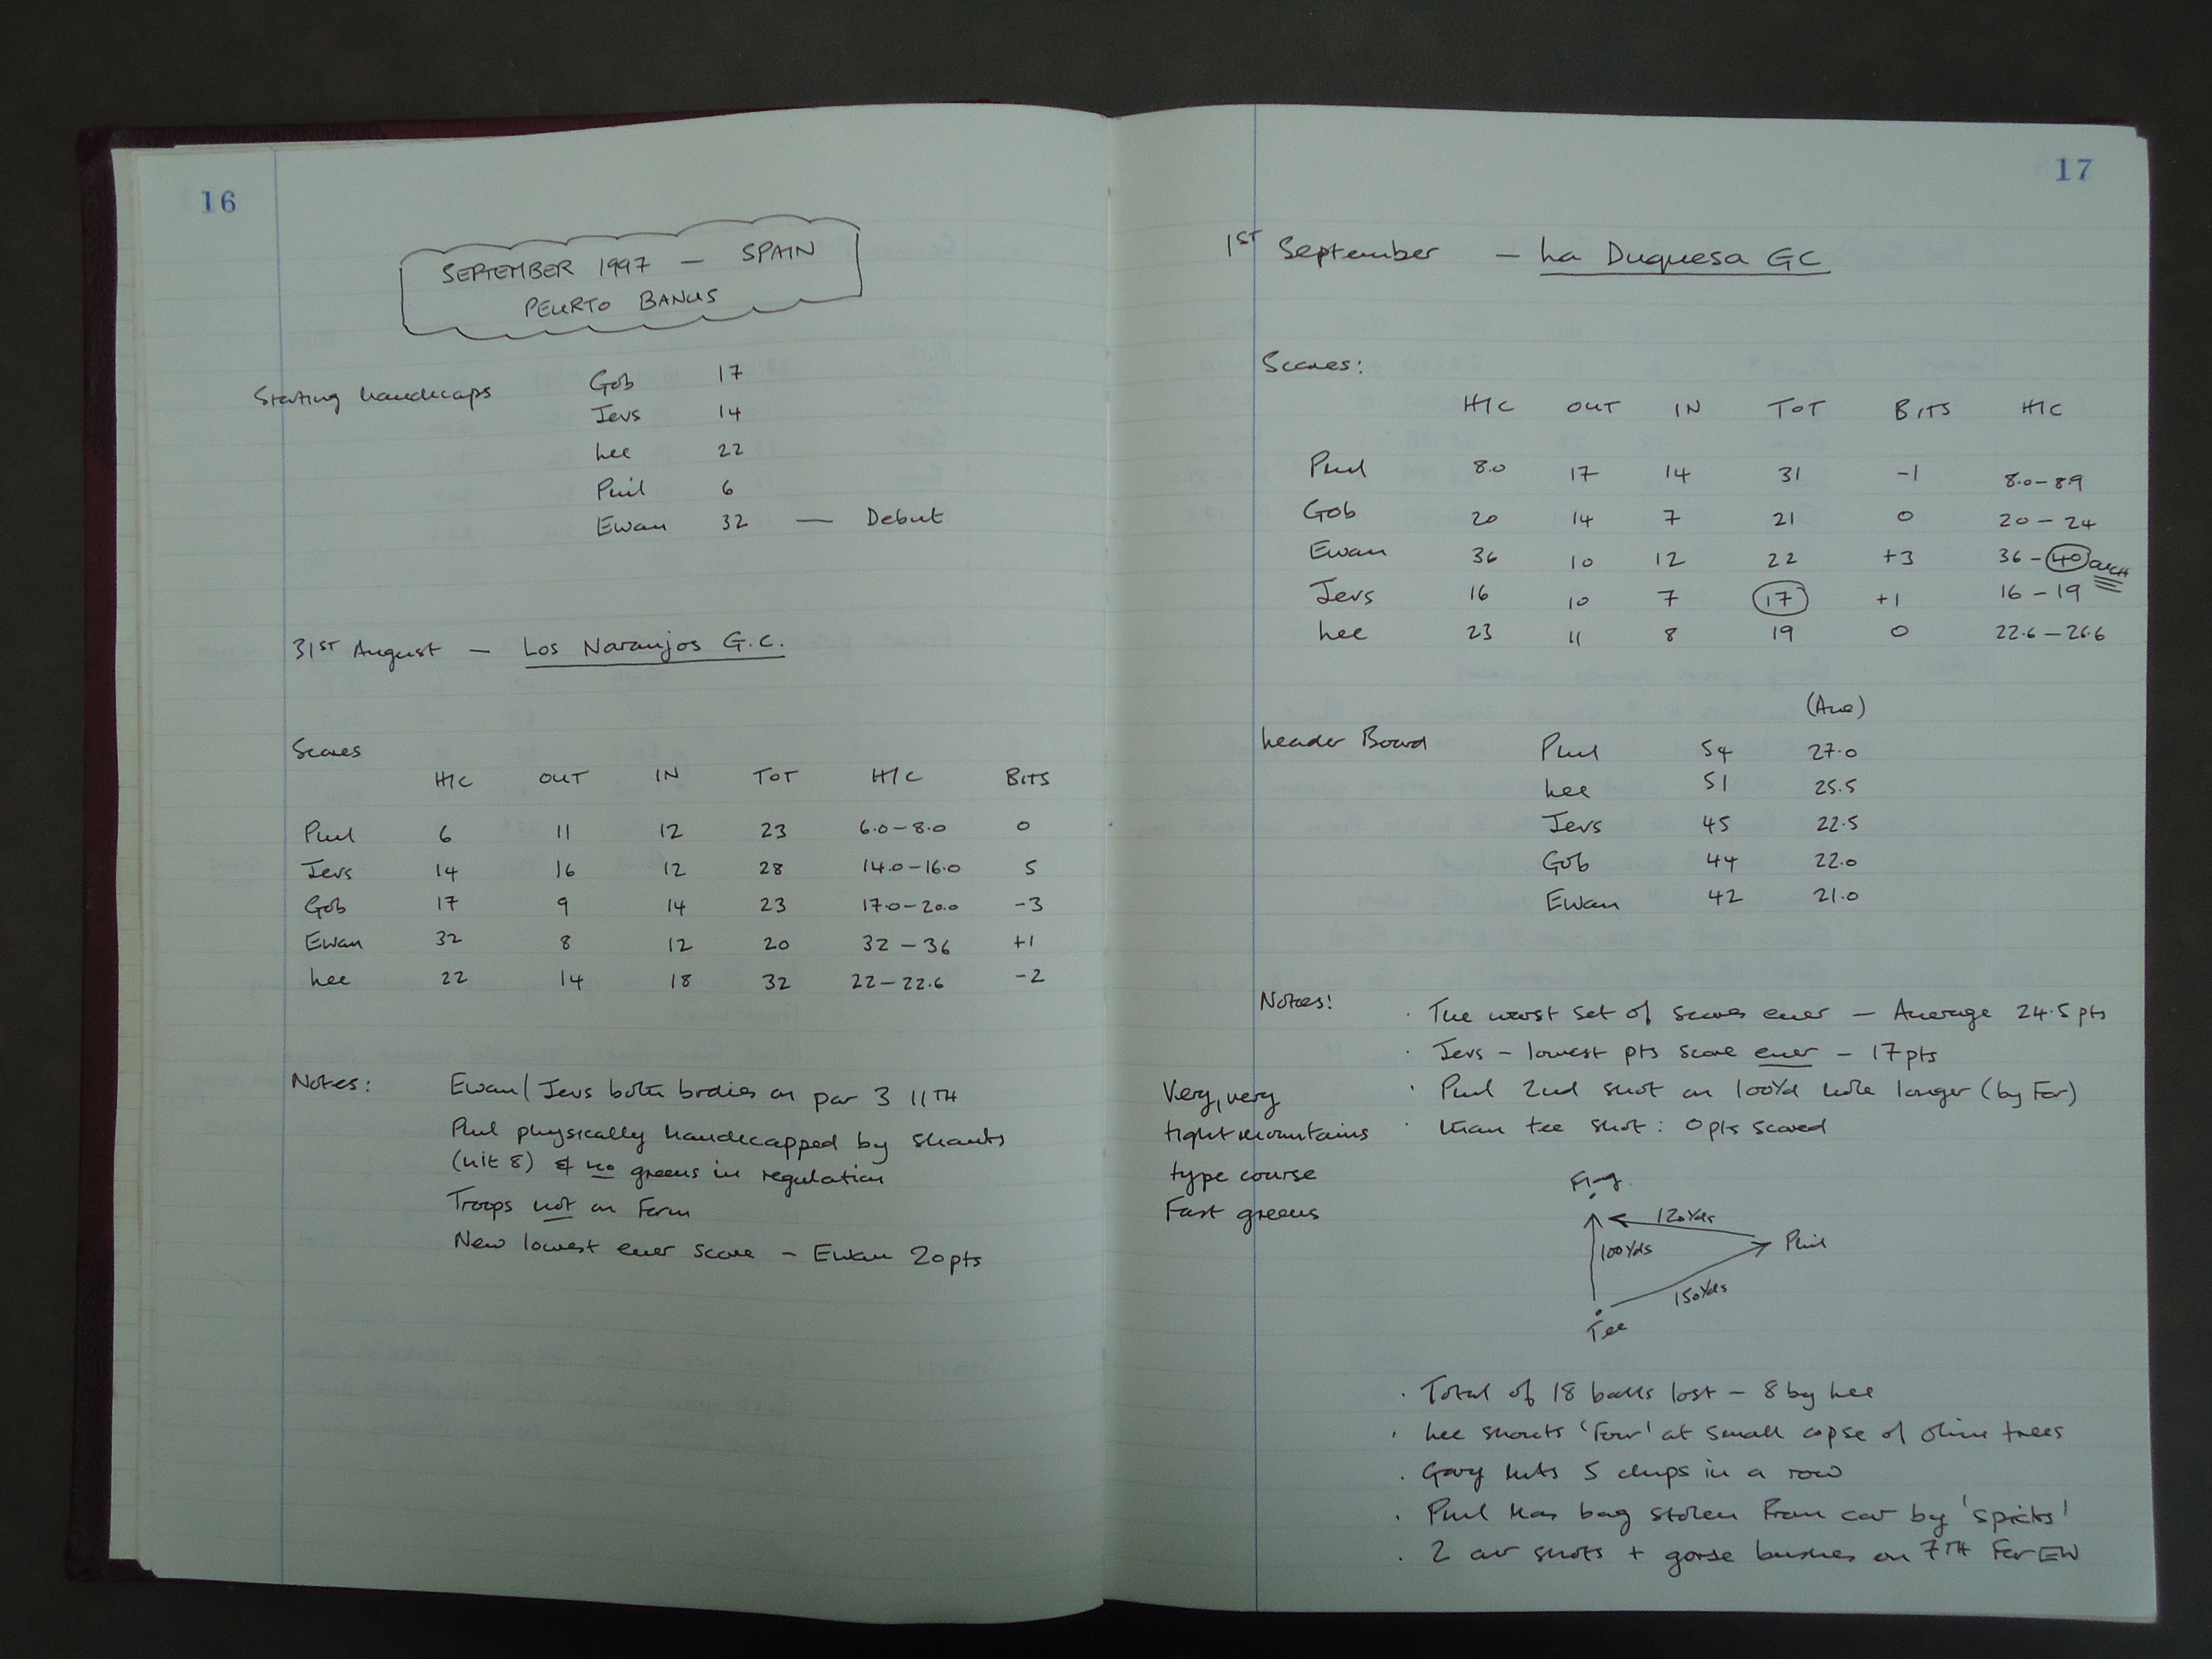 16
SEPTEMBER 1997 — SPAIN
PEURTO BANUS
Starting handicaps
Gob 17
Jevs 14
Lee 22
Phil 6
Ewan 32 — Debut
31ST August — Los Naranjos G.C.
Scores
H/C OUT IN TOT H/C BITS
Phil 6 11 12 23 6.0–8.0 0
Jevs 14 16 12 28 14.0–16.0 5
Gob 17 9 14 23 17.0–20.0 -3
Ewan 32 8 12 20 32–36 +1
Lee 22 14 18 32 22–22.6 -2
Notes: Ewan/Jevs both birdies on par 3 11TH
Phil physically handicapped by shanks
(hit 8) & no greens in regulation
Troops not on form
New lowest ever score – Ewan 20pts
17
1ST September – La Duquesa GC
Scores:
H/C OUT IN TOT BITS H/C
Phil 8.0 17 14 31 -1 8.0–8.9
Gob 20 14 7 21 0 20–24
Ewan 36 10 12 22 +3 36–40 OUCH
Jevs 16 10 7 17 +1 16–19
Lee 23 11 8 19 0 22.6–26.6
(Ave)
Leader Board Phil 54 27.0
Lee 51 25.5
Jevs 45 22.5
Gob 44 22.0
Ewan 42 21.0
Notes: · The worst set of scores ever – Average 24.5 pts
· Jevs – lowest pts score ever – 17pts
· Phil 2nd shot on 100Yd hole longer (by Far)
· than tee shot: 0pts scored
Very, very
tight mountains
type course
Fast greens
Flag
120Yds
100Yds
Phil
150Yds
Tee
· Total of 18 balls lost – 8 by Lee
· Lee shouts 'Four' at small copse of olive trees
· Gary hits 5 chips in a row
· Phil has bag stolen from car by 'spicks'
· 2 air shots + gorse bushes on 7TH For EW